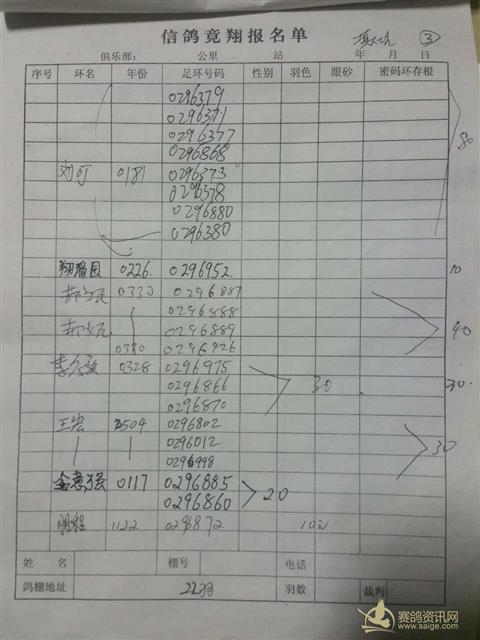 信鸽竞翔报名单
③
俱乐部： 公里 站 年 月 日
序号 环名 年份 足环号码 性别 羽色 眼砂 密码环存根
0296379
0296371
0296377
0296868
刘可 0181 0296373
0296378
0296880
0296380
80
翔鸽园 0226 0296952 10
0330 0296887
0296888
0296889 40
0330 0296926
0328 0296975
0296866 30 30
0296870
王宏 2504 0296802
0296012 30
0296998
金意强 0117 0296885
0296860 20
明程 1122 0296872 10元
姓名 棚号 电话
鸽棚地址 22羽 羽数 裁判
赛鸽资讯网
www.saige.com